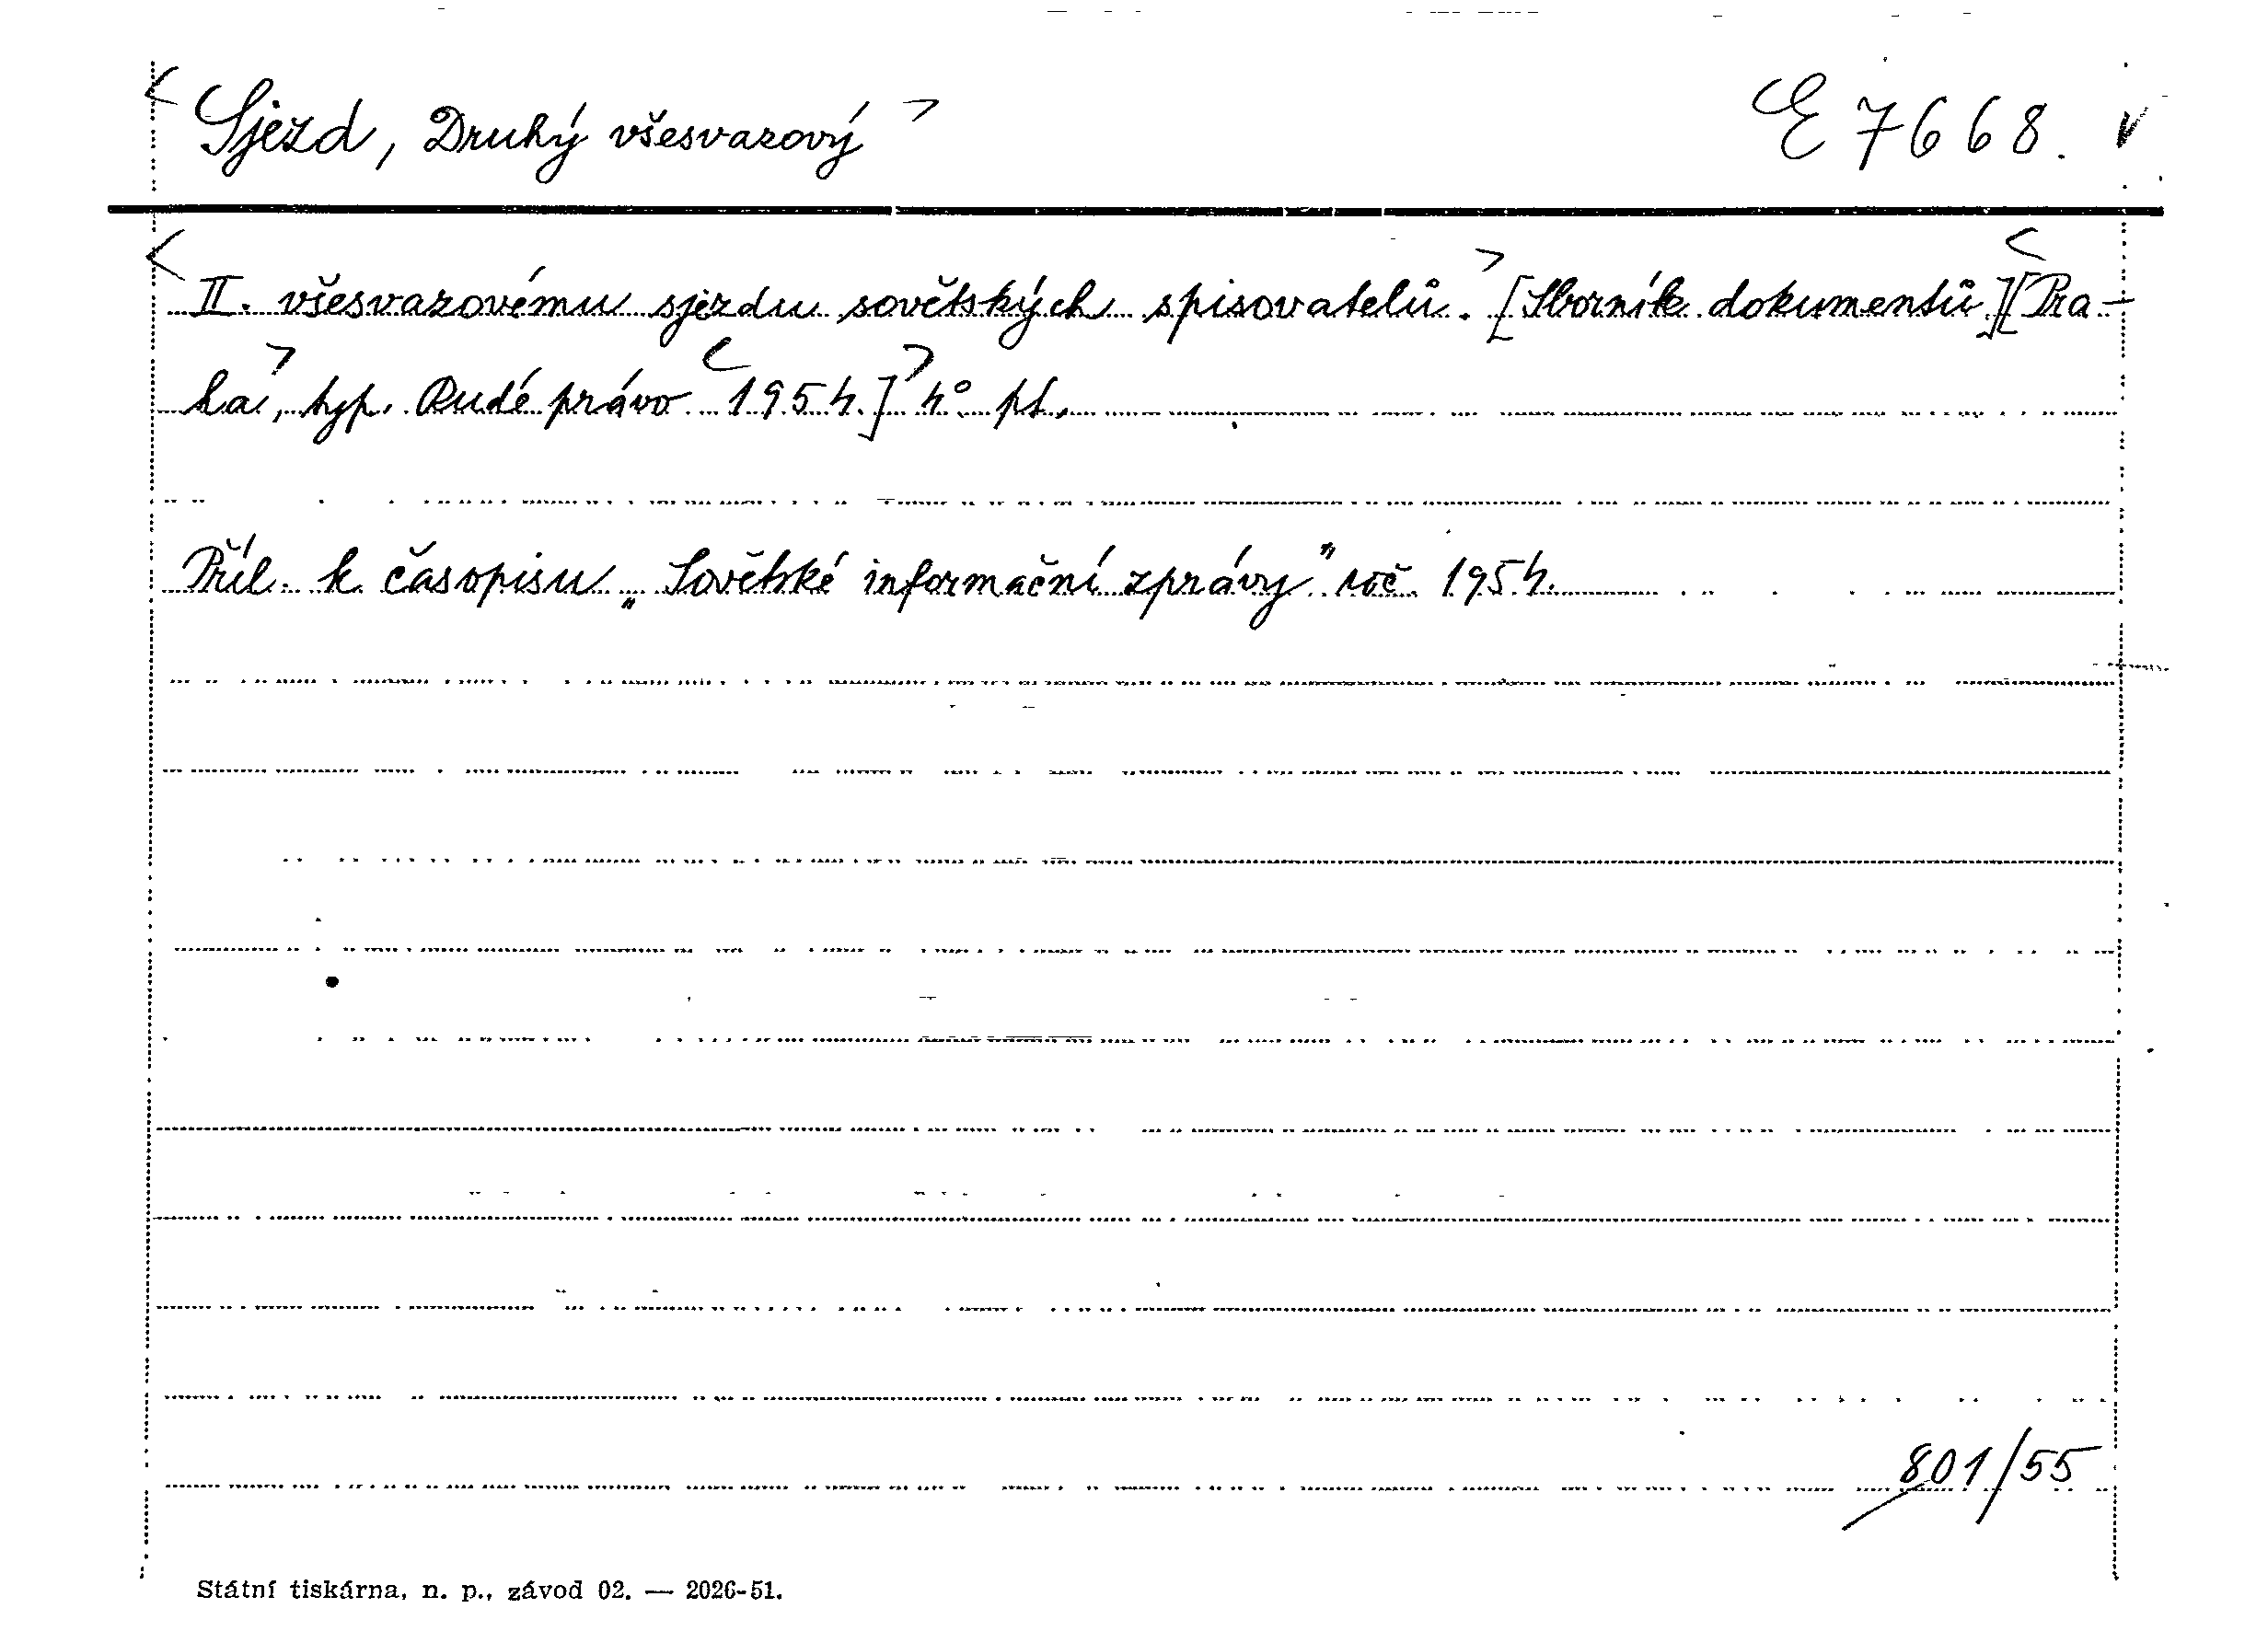 <Sjezd, Druhý všesvazový> E 7668. v
<II. všesvazovému sjezdu sovětských spisovatelů.> [Sborník dokumentů][<Pra-
ha>, typ. Rudé právo <1954.]> 4° pf.
Příl. k časopisu „Sovětské informační zprávy" roč. 1954.
801/55
Státní tiskárna, n. p., závod 02. — 2026-51.